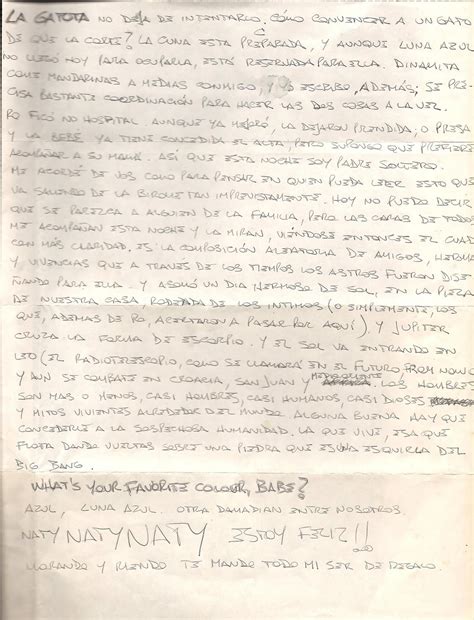 LA GATOTA NO DEJA DE INTENTARLO. CÓMO CONVENCER A UN GATO
DE QUE LA CORTE? LA CUNA ESTA PREPARADA, Y AUNQUE LUNA AZUL
NO LLEGÓ HOY PARA OCUPARLA, ESTÁ RESERVADA PARA ELLA. DINAMITA
COME MANDARINAS A MEDIAS CONMIGO, Y YO ESCRIBO, ADEMÁS; SE PRE-
CISA BASTANTE COORDINACIÓN PARA HACER LAS DOS COSAS A LA VEZ.
RO FICÓ NO HOSPITAL. AUNQUE YA MEJORÓ, LA DEJARON PRENDIDA; O PRESA
Y LA BEBÉ YA TIENE CONCEDIDA EL ALTA, PERO SUPONGO QUE PREFIERE
ACOMPAÑAR A SU MAMÁ. ASÍ QUE ESTA NOCHE SOY PADRE SOLTERO.
ME ACORDÉ DE VOS COMO PARA PENSAR EN QUIEN PUEDA LEER ESTO QUE
VA SALIENDO DE LA BIROME TAN IMPREVISTAMENTE. HOY NO PUEDO DECIR
QUE SE PAREZCA A ALGUIEN DE LA FAMILIA, PERO LAS CARAS DE TODOS
ME ACOMPAÑAN ESTA NOCHE Y LA MIRAN, VIÉNDOSE ENTONCES EL CUAL
CON MÁS CLARIDAD. ES LA COMPOSICIÓN ALEATORIA DE AMIGOS, HERMA
Y VIVENCIAS QUE A TRAVÉS DE LOS TIEMPOS LOS ASTROS FUERON DISE-
ÑANDO PARA ELLA. Y ASOMÓ UN DIA HERMOSO DE SOL, EN LA PIEZA
DE NUESTRA CASA, RODEADA DE LOS INTIMOS (O SIMPLEMENTE, LOS
QUE, ADEMAS DE RO, ACERTARON A PASAR POR AQUÍ) Y JUPITER
CRUZA LA FORMA DE ESCORPIO. Y EL SOL VA ENTRANDO EN
LEO (EL RADIOTELESCOPIO, COMO SE LLAMARÁ EN EL FUTURO, FROM NOW ON)
Y AUN SE COMBATE EN CROACIA, SAN JUAN Y. LOS HOMBRES
SON MAS O MENOS, CASI HOMBRES, CASI HUMANOS, CASI DIOSES
Y MITOS VIVIENTES ALREDEDOR DEL MUNDO. ALGUNA BUENA HAY QUE
CONCEDERLE A LA SOSPECHOSA HUMANIDAD. LA QUE VIVE, ESA QUE
FLOTA DANDO VUELTAS SOBRE UNA PIEDRA QUE ES UNA ESQUIRLA DEL
BIG BANG.
WHAT'S YOUR FAVORITE COLOUR, BABE?
AZUL, LUNA AZUL. OTRA DAMADIAN ENTRE NOSOTROS.
NATY NATY NATY ESTOY FELIZ!!
LLORANDO Y RIENDO TE MANDO TODO MI SER DE REGALO.